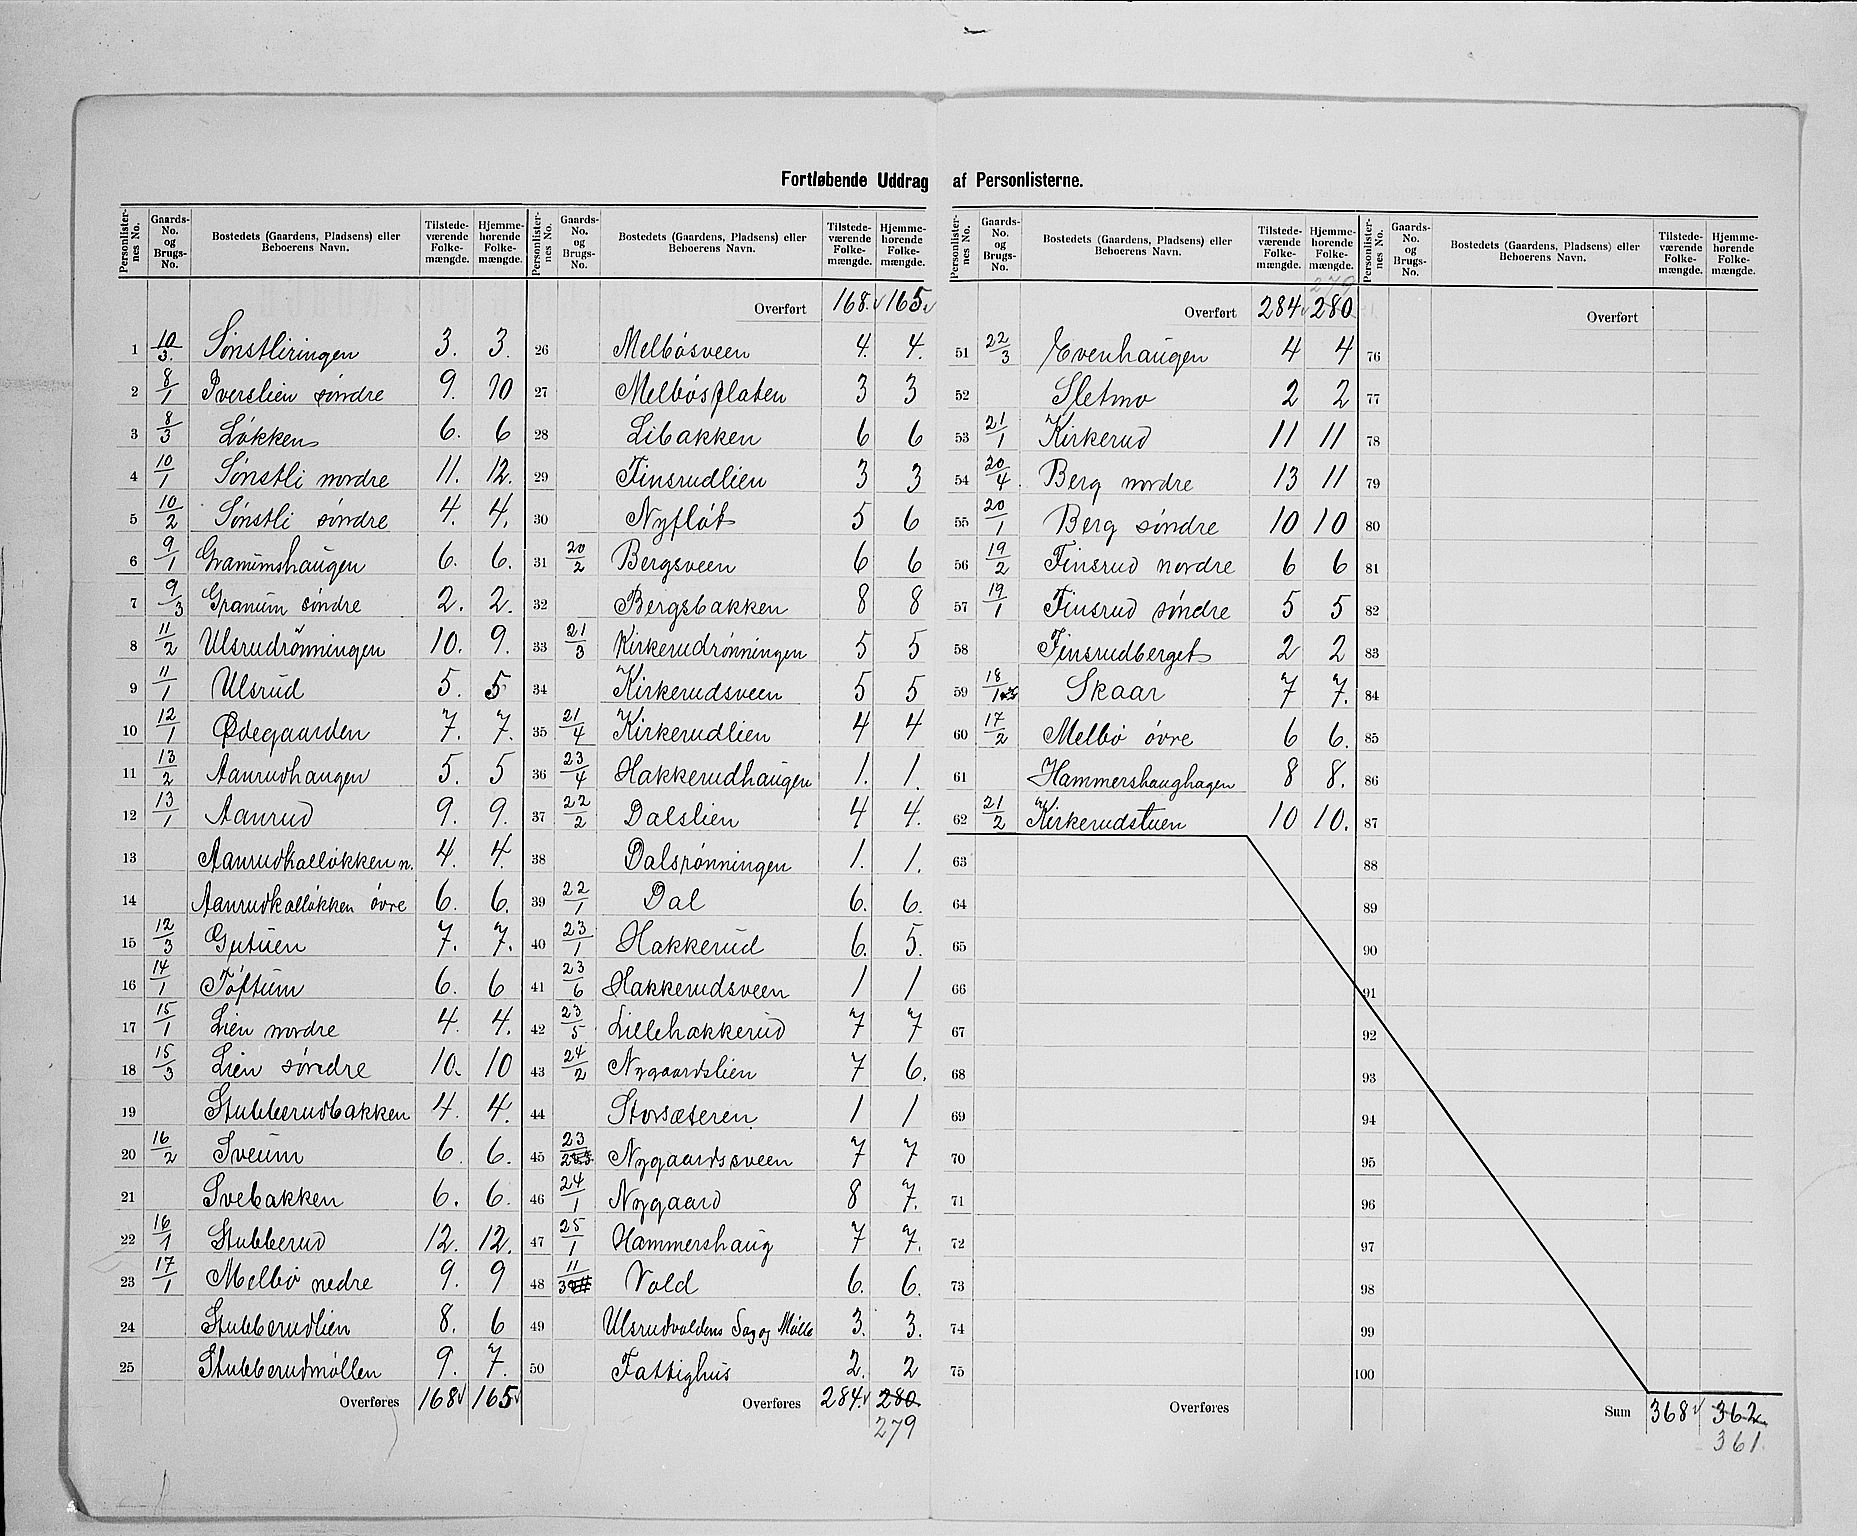 Fortløbende Uddrag af Personlisterne.
Personlisternes No. | Gaards-No. og Brugs-No. | Bostedets (Gaardens, Pladsens) eller Beboerens Navn. | Tilstedeværende Folkemængde. | Hjemmehørende Folkemængde.
1 10/3. Sønstliringen 3. 3.
2 8/1 Iverslien søndre 9. 10
3 8/3 Løkken 6. 6
4 10/1 Sønstli nordre 11. 12.
5 10/2 Sønstli søndre 4. 4.
6 9/1 Granumshaugen 6. 6.
7 9/3 Granum søndre 2. 2.
8 11/2 Ulsrudrønningen 10. 9.
9 11/1 Ulsrud 5. 5
10 12/1 Ødegaarden 7. 7.
11 13/2 Aanrudhaugen 5. 5
12 13/1 Aanrud 9. 9.
13 Aanrudkalløkken n. 4. 4.
14 Aanrudkalløkken øvre 6. 6.
15 12/3 Gutuen 7. 7.
16 14/1 Töftum 6. 6
17 15/1 Lien nordre 4. 4.
18 15/3 Lien søndre 10. 10
19 Stubberudbakken 4. 4.
20 16/2 Sveum 6. 6.
21 Svebakken 6. 6.
22 16/1 Stubberud 12. 12.
23 17/1 Melbø nedre 9. 9
24 Stubberudlien 8. 6
25 Stubberudmøllen 9. 7.
Overføres 168 165
Personlisternes No. | Gaards-No. og Brugs-No. | Bostedets (Gaardens, Pladsens) eller Beboerens Navn. | Tilstedeværende Folkemængde. | Hjemmehørende Folkemængde.
Overført 168. 165
26 Melbøsveen 4. 4.
27 Melbøsflaten 3 3
28 Libakken 6 6
29 Finsrudlien 3 3
30 Nyfløt 5 6
31 20/2 Bergsveen 6 6
32 Bergsbakken 8 8
33 21/3 Kirkerudrønningen 5 5
34 Kirkerudsveen 5 5
35 21/4 Kirkerudlien 4 4
36 23/4 Hakkerudhaugen 1. 1.
37 22/2 Dalslien 4 4.
38 Dalsrønningen 1. 1.
39 22/1 Dal 6. 6.
40 23/1 Hakkerud 6. 5.
41 23/6 Hakkerudsveen 1 1
42 23/5 Lillehakkerud 7 7
43 24/2 Nygaardslien 7 6.
44 Storsæteren 1 1
45 23/2 Nygaardssveen 7 7
46 24/1 Nygaard 8 7.
47 25/1 Hammershaug 7 7.
48 11/3 Vold 6. 6.
49 Ulsrudvoldens Sag og Mølle 3. 3.
50 Fattighus 2. 2
Overføres 284. 280
279
Personlisternes No. | Gaards-No. og Brugs-No. | Bostedets (Gaardens, Pladsens) eller Beboerens Navn. | Tilstedeværende Folkemængde. | Hjemmehørende Folkemængde.
279
Overført 284 280
51 22/3 Evenhaugen 4 4
52 Sletmo 2 2
53 21/1 Kirkerud 11 11
54 20/4 Berg nordre 13 11
55 20/1 Berg søndre 10 10
56 19/2 Finsrud nordre 6 6
57 19/1 Finsrud søndre 5 5
58 Finsrudberget 2 2
59 18/1 Skaar 7 7.
60 17/2 Melbø øvre 6 6.
61 Hammershaughagen 8 8.
62 21/2 Kirkerudstuen 10 10.
63
64
65
66
67
68
69
70
71
72
73
74
75
Overføres
Personlisternes No. | Gaards-No. og Brugs-No. | Bostedets (Gaardens, Pladsens) eller Beboerens Navn. | Tilstedeværende Folkemængde. | Hjemmehørende Folkemængde.
Overført
76
77
78
79
80
81
82
83
84
85
86
87
88
89
90
91
92
93
94
95
96
97
98
99
100
Sum 368 362
361.